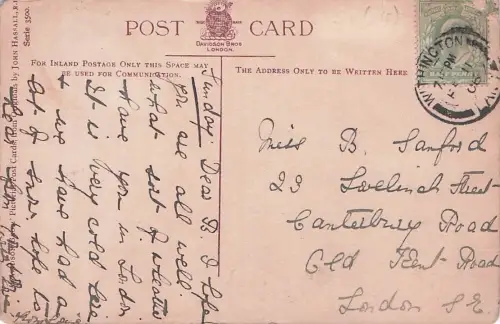 POST CARD
DAVIDSON BROS
LONDON.
FOR INLAND POSTAGE ONLY THIS SPACE MAY
BE USED FOR COMMUNICATION.
THE ADDRESS ONLY TO BE WRITTEN HERE
by JOHN HASSALL, R.I.
Serie 3500.
HALFPENNY
Sunday. Dear B. I hope
you are all well.
what sort of weather
have you in London
It is very cold here
& we have had a
lot of snow hope to
Miss B. Sanford
23 Lovelinch Street
Canterbury Road
Old Kent Road
London S.E.